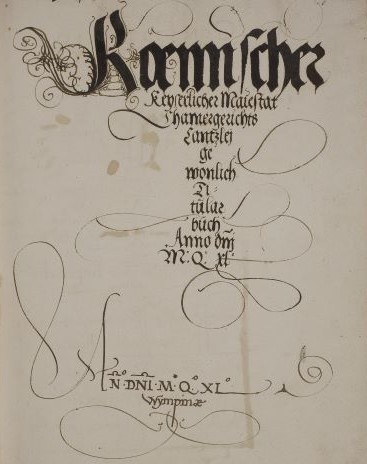 Roemischer
Keyserlicher Maiestat
Chamergerichts
Cantzlei
ge
wonlich
Ti-
tular
buch
Anno dnj
M. Q xl.
AN. DNI. M. Q. XL
Wympinæ